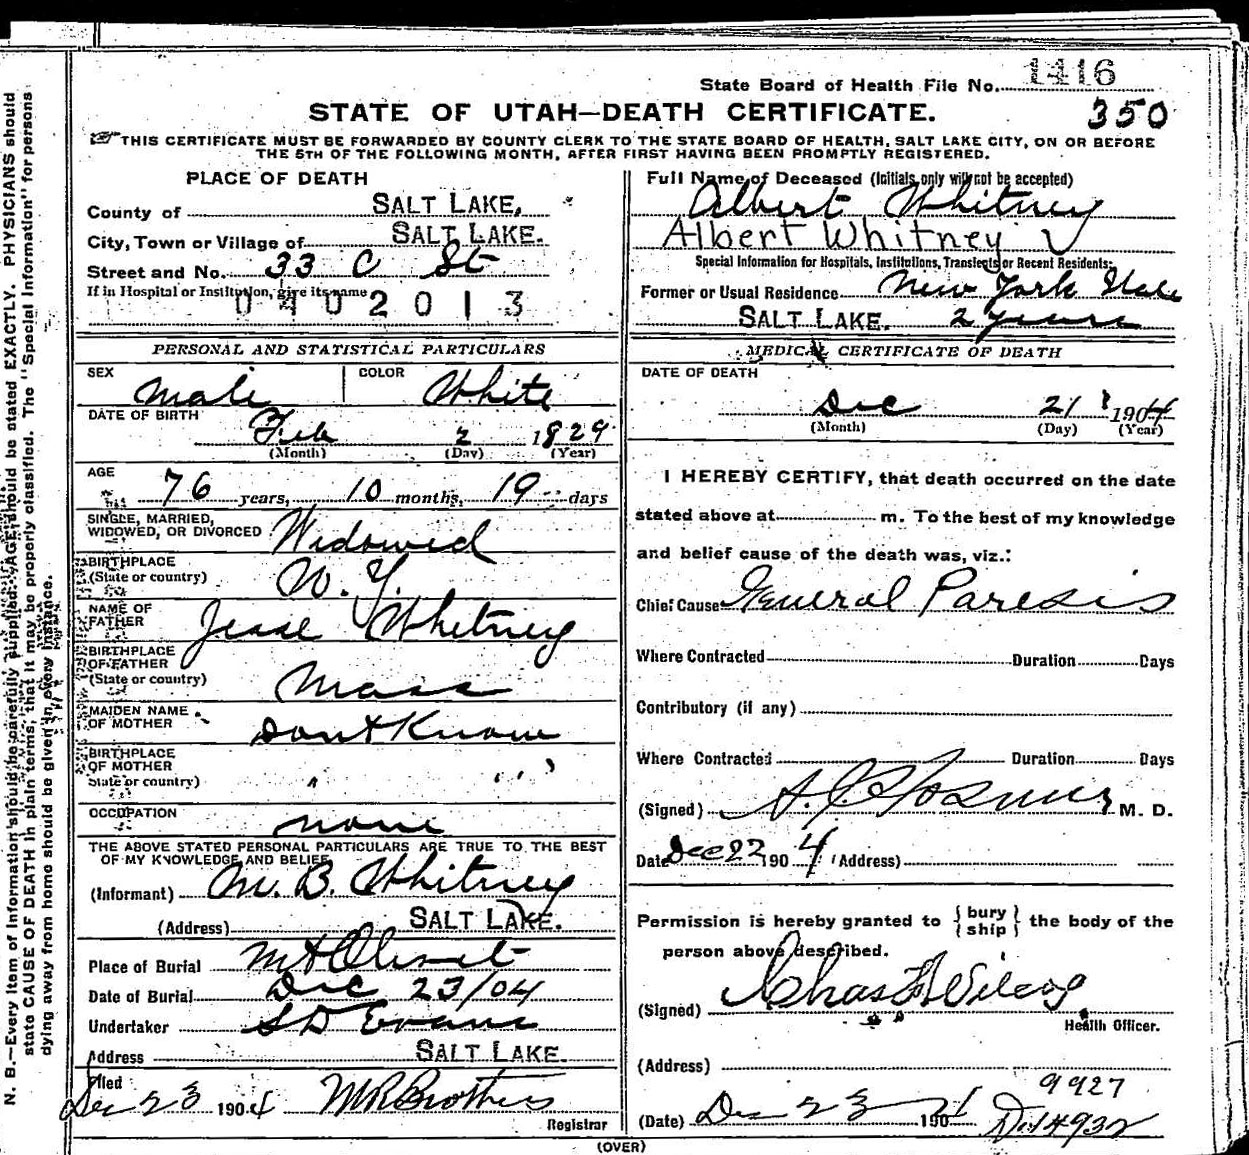 State Board of Health File No. 1416
350
STATE OF UTAH—DEATH CERTIFICATE.
THIS CERTIFICATE MUST BE FORWARDED BY COUNTY CLERK TO THE STATE BOARD OF HEALTH, SALT LAKE CITY, ON OR BEFORE
THE 5TH OF THE FOLLOWING MONTH, AFTER FIRST HAVING BEEN PROMPTLY REGISTERED.
PLACE OF DEATH
County of SALT LAKE,
City, Town or Village of SALT LAKE.
Street and No. 33 C St
If in Hospital or Institution, give its name
0402013
PERSONAL AND STATISTICAL PARTICULARS
SEX Male COLOR White
DATE OF BIRTH Feb 2 1829
(Month) (Day) (Year)
AGE 76 years, 10 months, 19 days
SINGLE, MARRIED,
WIDOWED, OR DIVORCED Widowed
BIRTHPLACE
(State or country) N. Y.
NAME OF
FATHER Jesse Whitney
BIRTHPLACE
OF FATHER
(State or country) Mass
MAIDEN NAME
OF MOTHER Dont Know
BIRTHPLACE
OF MOTHER
State or country) " "
OCCUPATION none
THE ABOVE STATED PERSONAL PARTICULARS ARE TRUE TO THE BEST
OF MY KNOWLEDGE AND BELIEF
(Informant) M. B. Whitney
(Address) SALT LAKE.
Place of Burial Mt Olivet
Date of Burial Dec 23/04
Undertaker S D Evans
Address SALT LAKE.
Filed
Dec 23 1904
Registrar
Full Name of Deceased (Initials only will not be accepted)
Albert Whitney
Albert Whitney
Special Information for Hospitals, Institutions, Transients or Recent Residents:
Former or Usual Residence New York State
SALT LAKE. 2 years
MEDICAL CERTIFICATE OF DEATH
DATE OF DEATH
Dec 21 1904
(Month) (Day) (Year)
I HEREBY CERTIFY, that death occurred on the date
stated above at m. To the best of my knowledge
and belief cause of the death was, viz.:
Chief Cause General Paresis
Where Contracted Duration Days
Contributory (if any)
Where Contracted Duration Days
(Signed) M. D.
Date Dec 22 1904 (Address)
Permission is hereby granted to { bury ship } the body of the
person above described.
(Signed) Chas
Health Officer.
(Address)
9927
(Date) Dec 23 190
(OVER)
N. B.—Every item of information should be carefully supplied. AGE should be stated EXACTLY. PHYSICIANS should
state CAUSE OF DEATH in plain terms, that it may be properly classified. The "Special Information" for persons
dying away from home should be given in every instance.